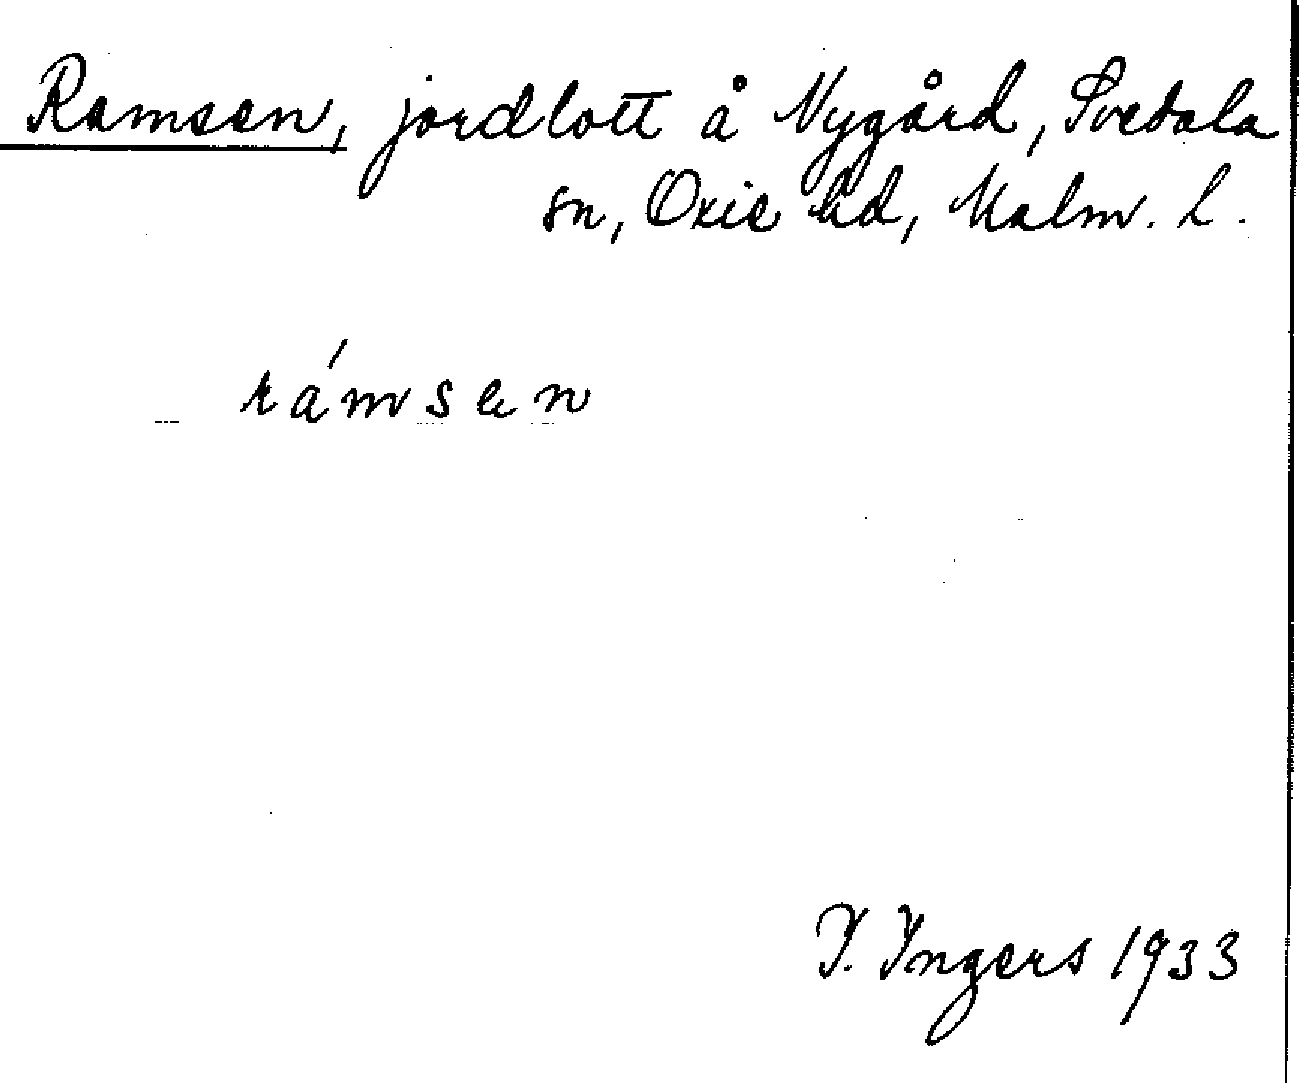 Ramsen, jordlott å Nygård, Svedala
sn, Oxie hd, Malm. L.
rámsen
I. Ingers 1933